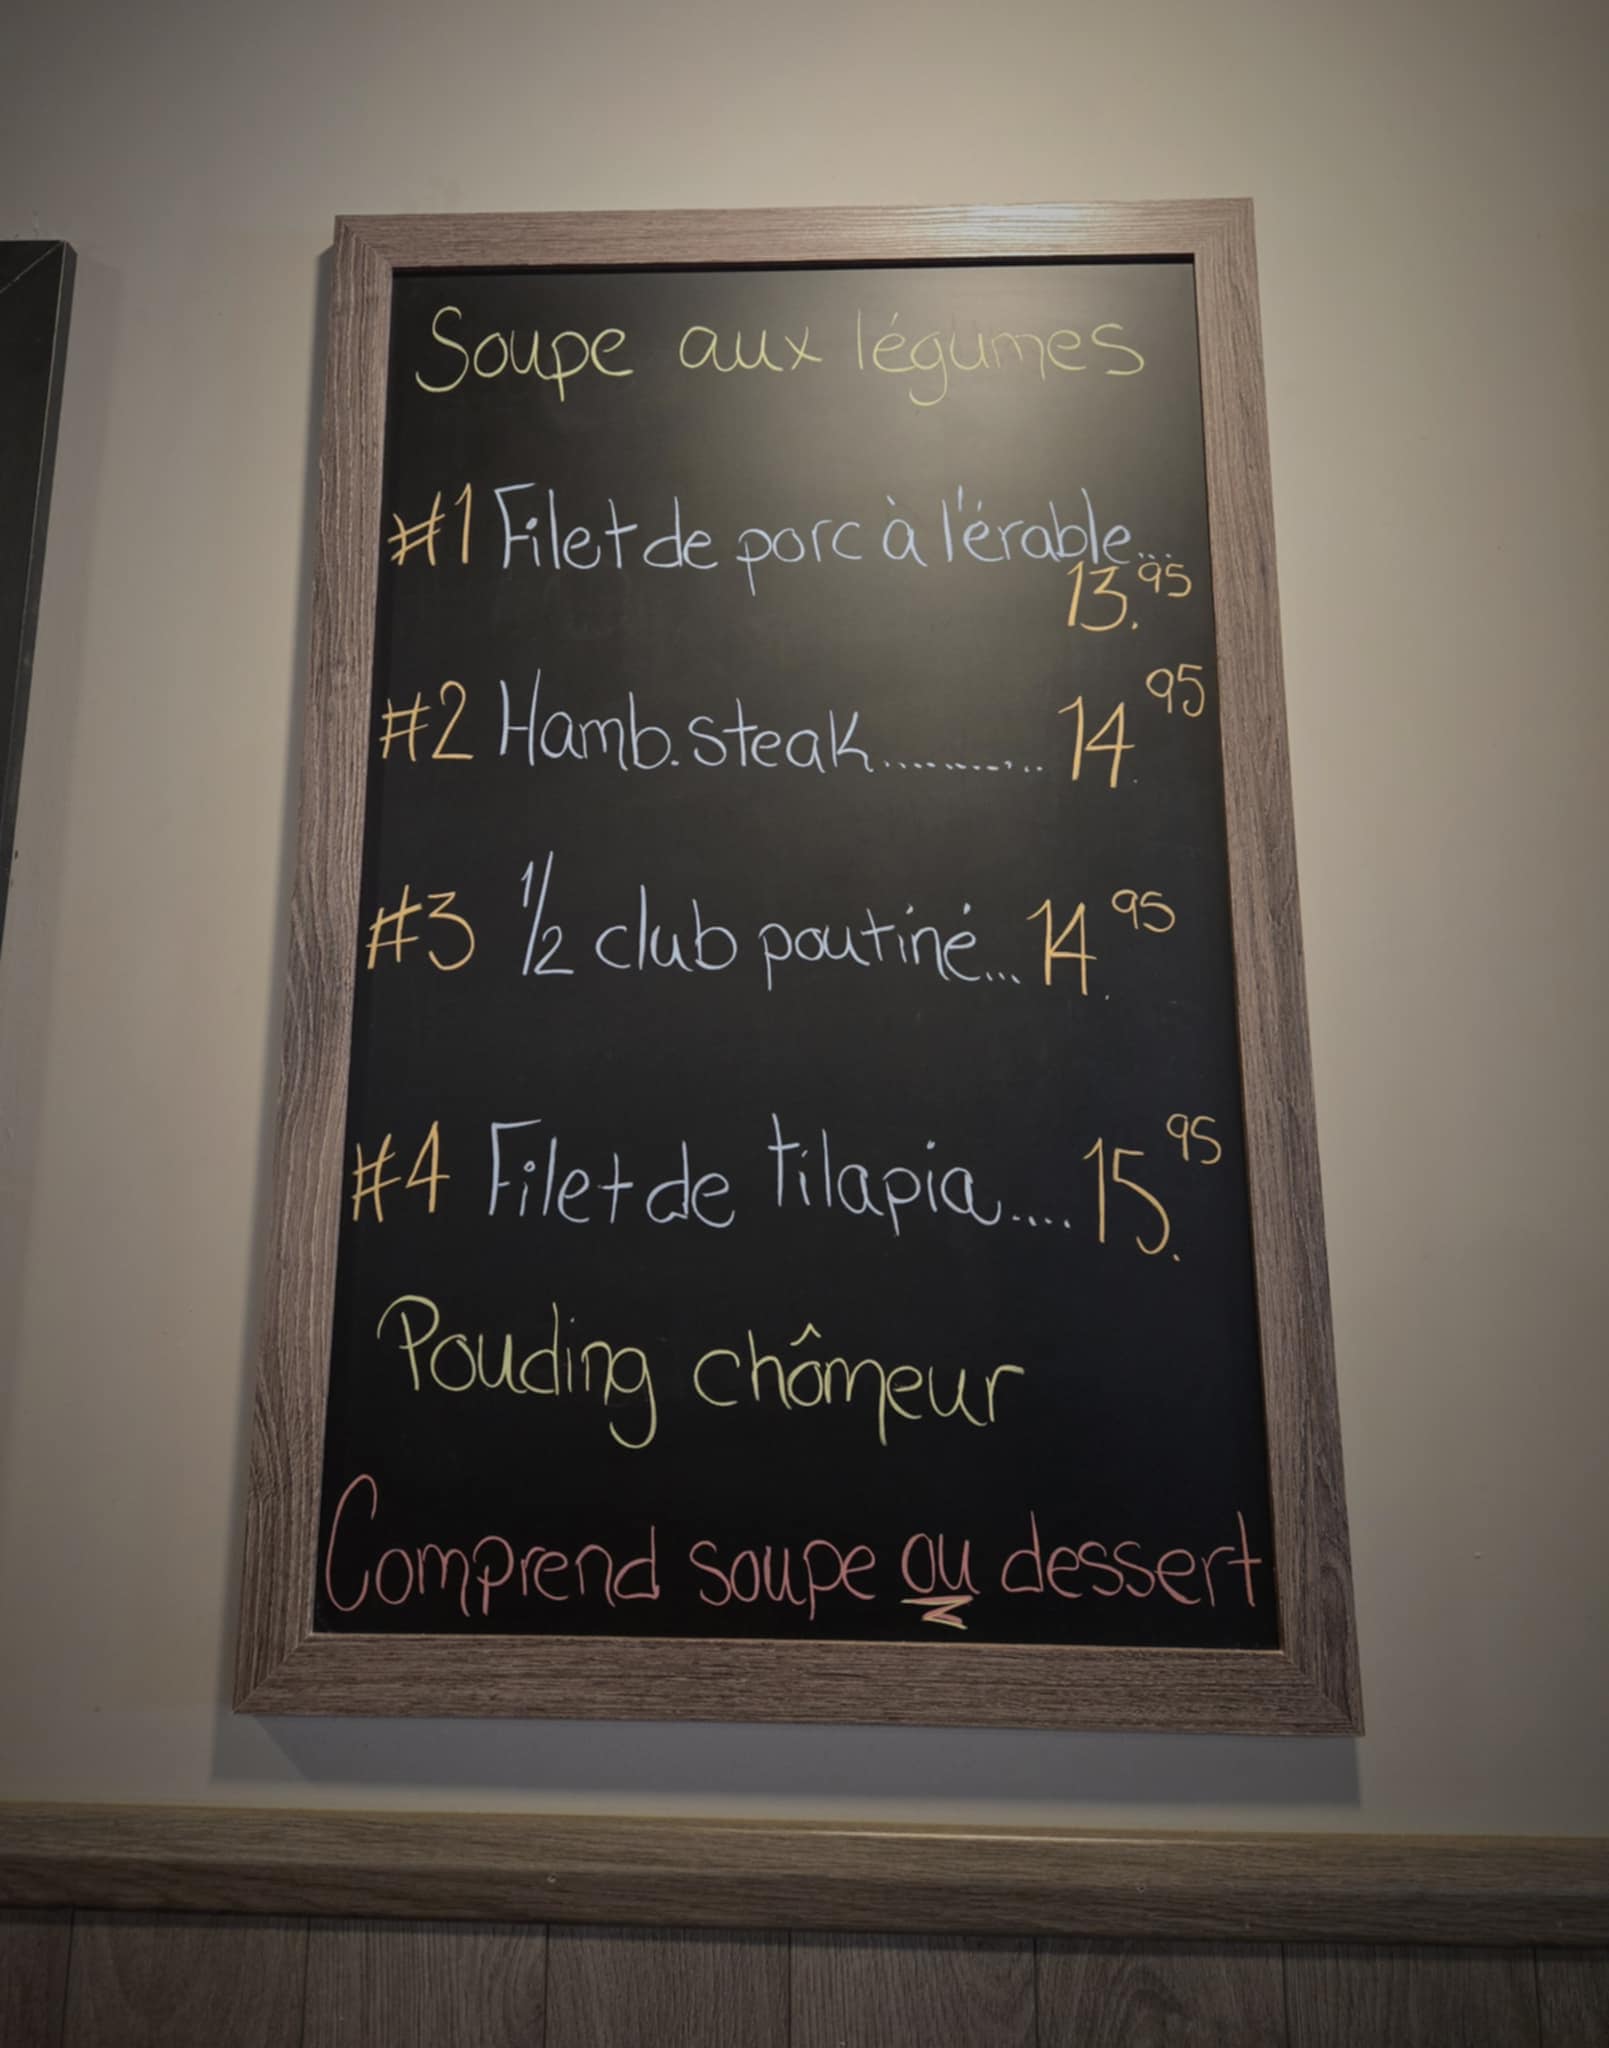 Soupe aux légumes
#1 Filet de porc à l'érable...
13.95
#2 Hamb. steak........... 14.95
#3 1/2 club poutiné... 14.95
#4 Filet de tilapia.... 15.95
Pouding chômeur
Comprend soupe ou dessert